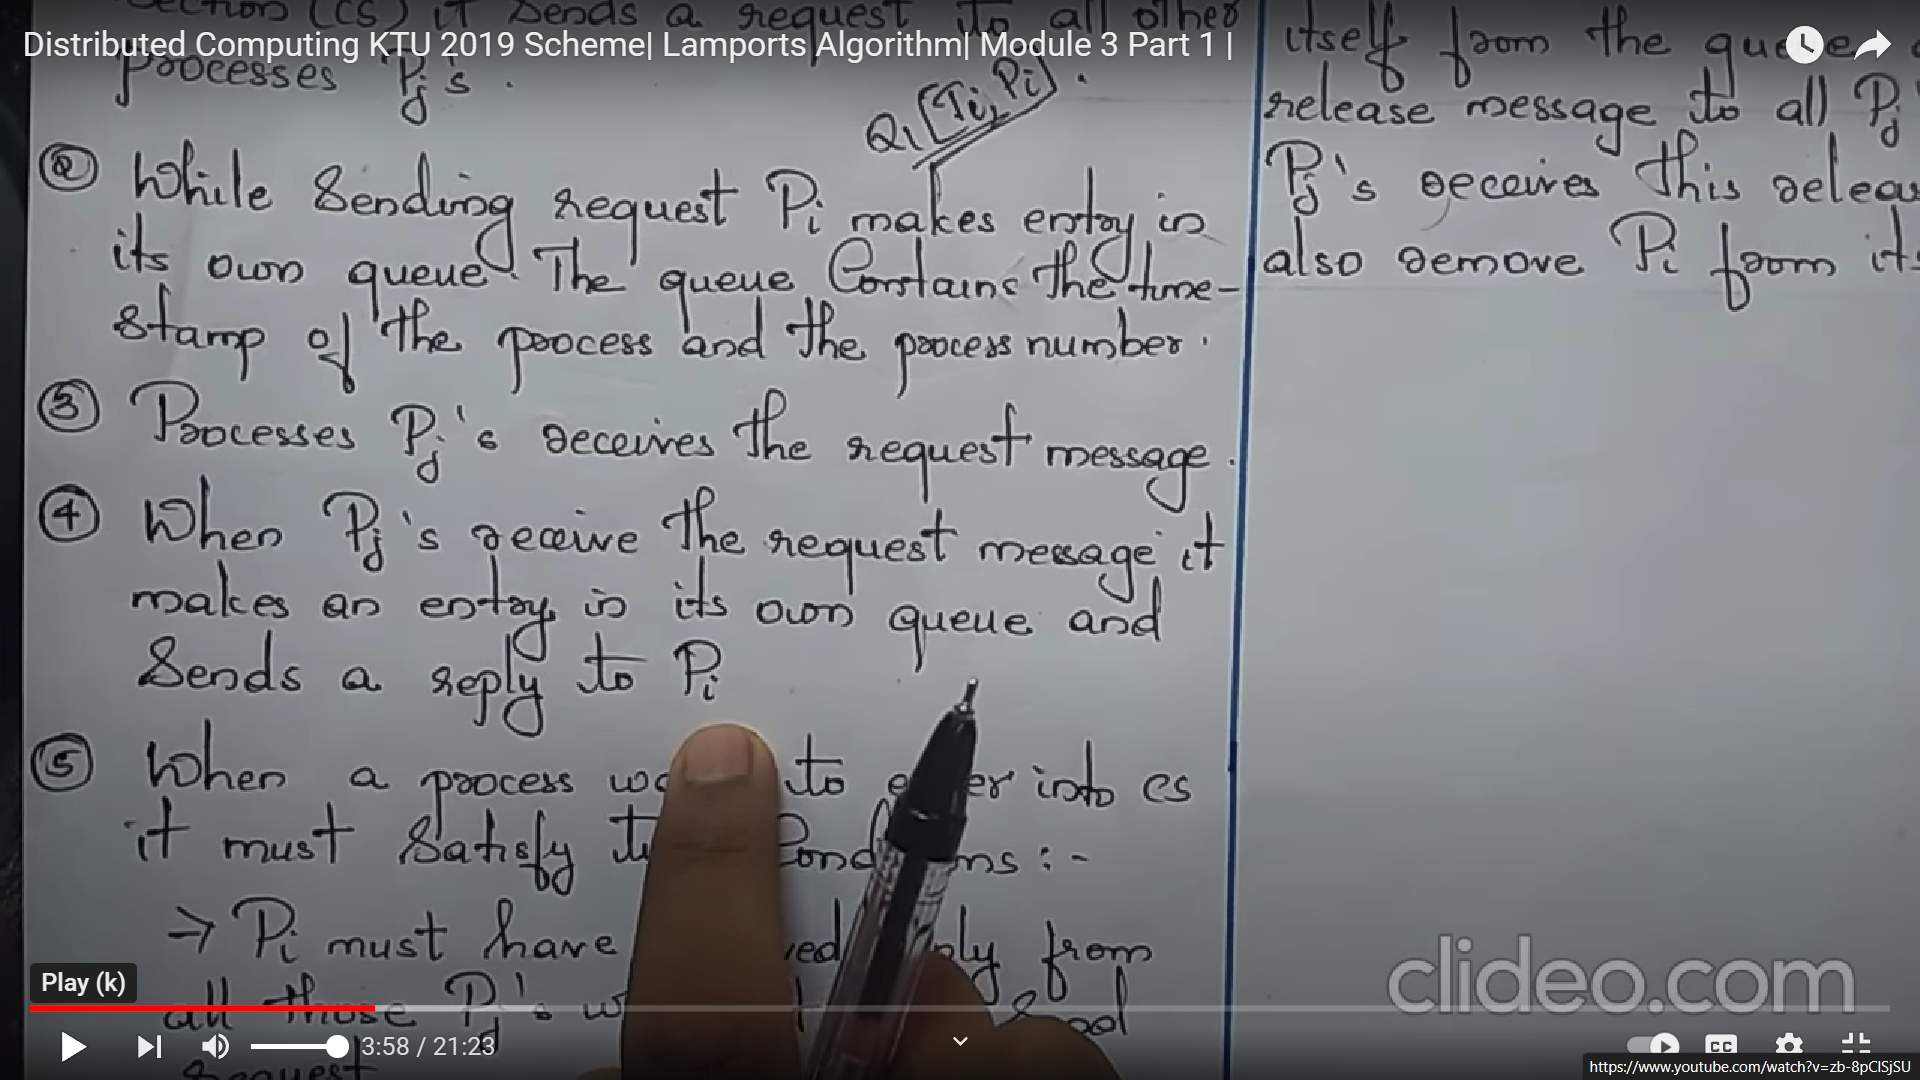 Section (CS) it sends a request to all other
Distributed Computing KTU 2019 Scheme| Lamports Algorithm| Module 3 Part 1 |
processes Pj's.
Q1 [Ti, Pi].
② While Sending request Pi makes entry in
its own queue. The queue Contains the time-
stamp of the process and the process number.
③ Processes Pj's receives the request message.
④ When Pj's receive the request message it
makes an entry in its own queue and
Sends a reply to Pi
⑤ When a process to into CS
it must Satisfy :-
→ Pi must have from
all those Pj's
request
itself from the
release message to all Pj
Pj's receives this
also remove Pi from its
clideo.com
Play (k)
3:58 / 21:23
CC
https://www.youtube.com/watch?v=zb-8pClSjSU